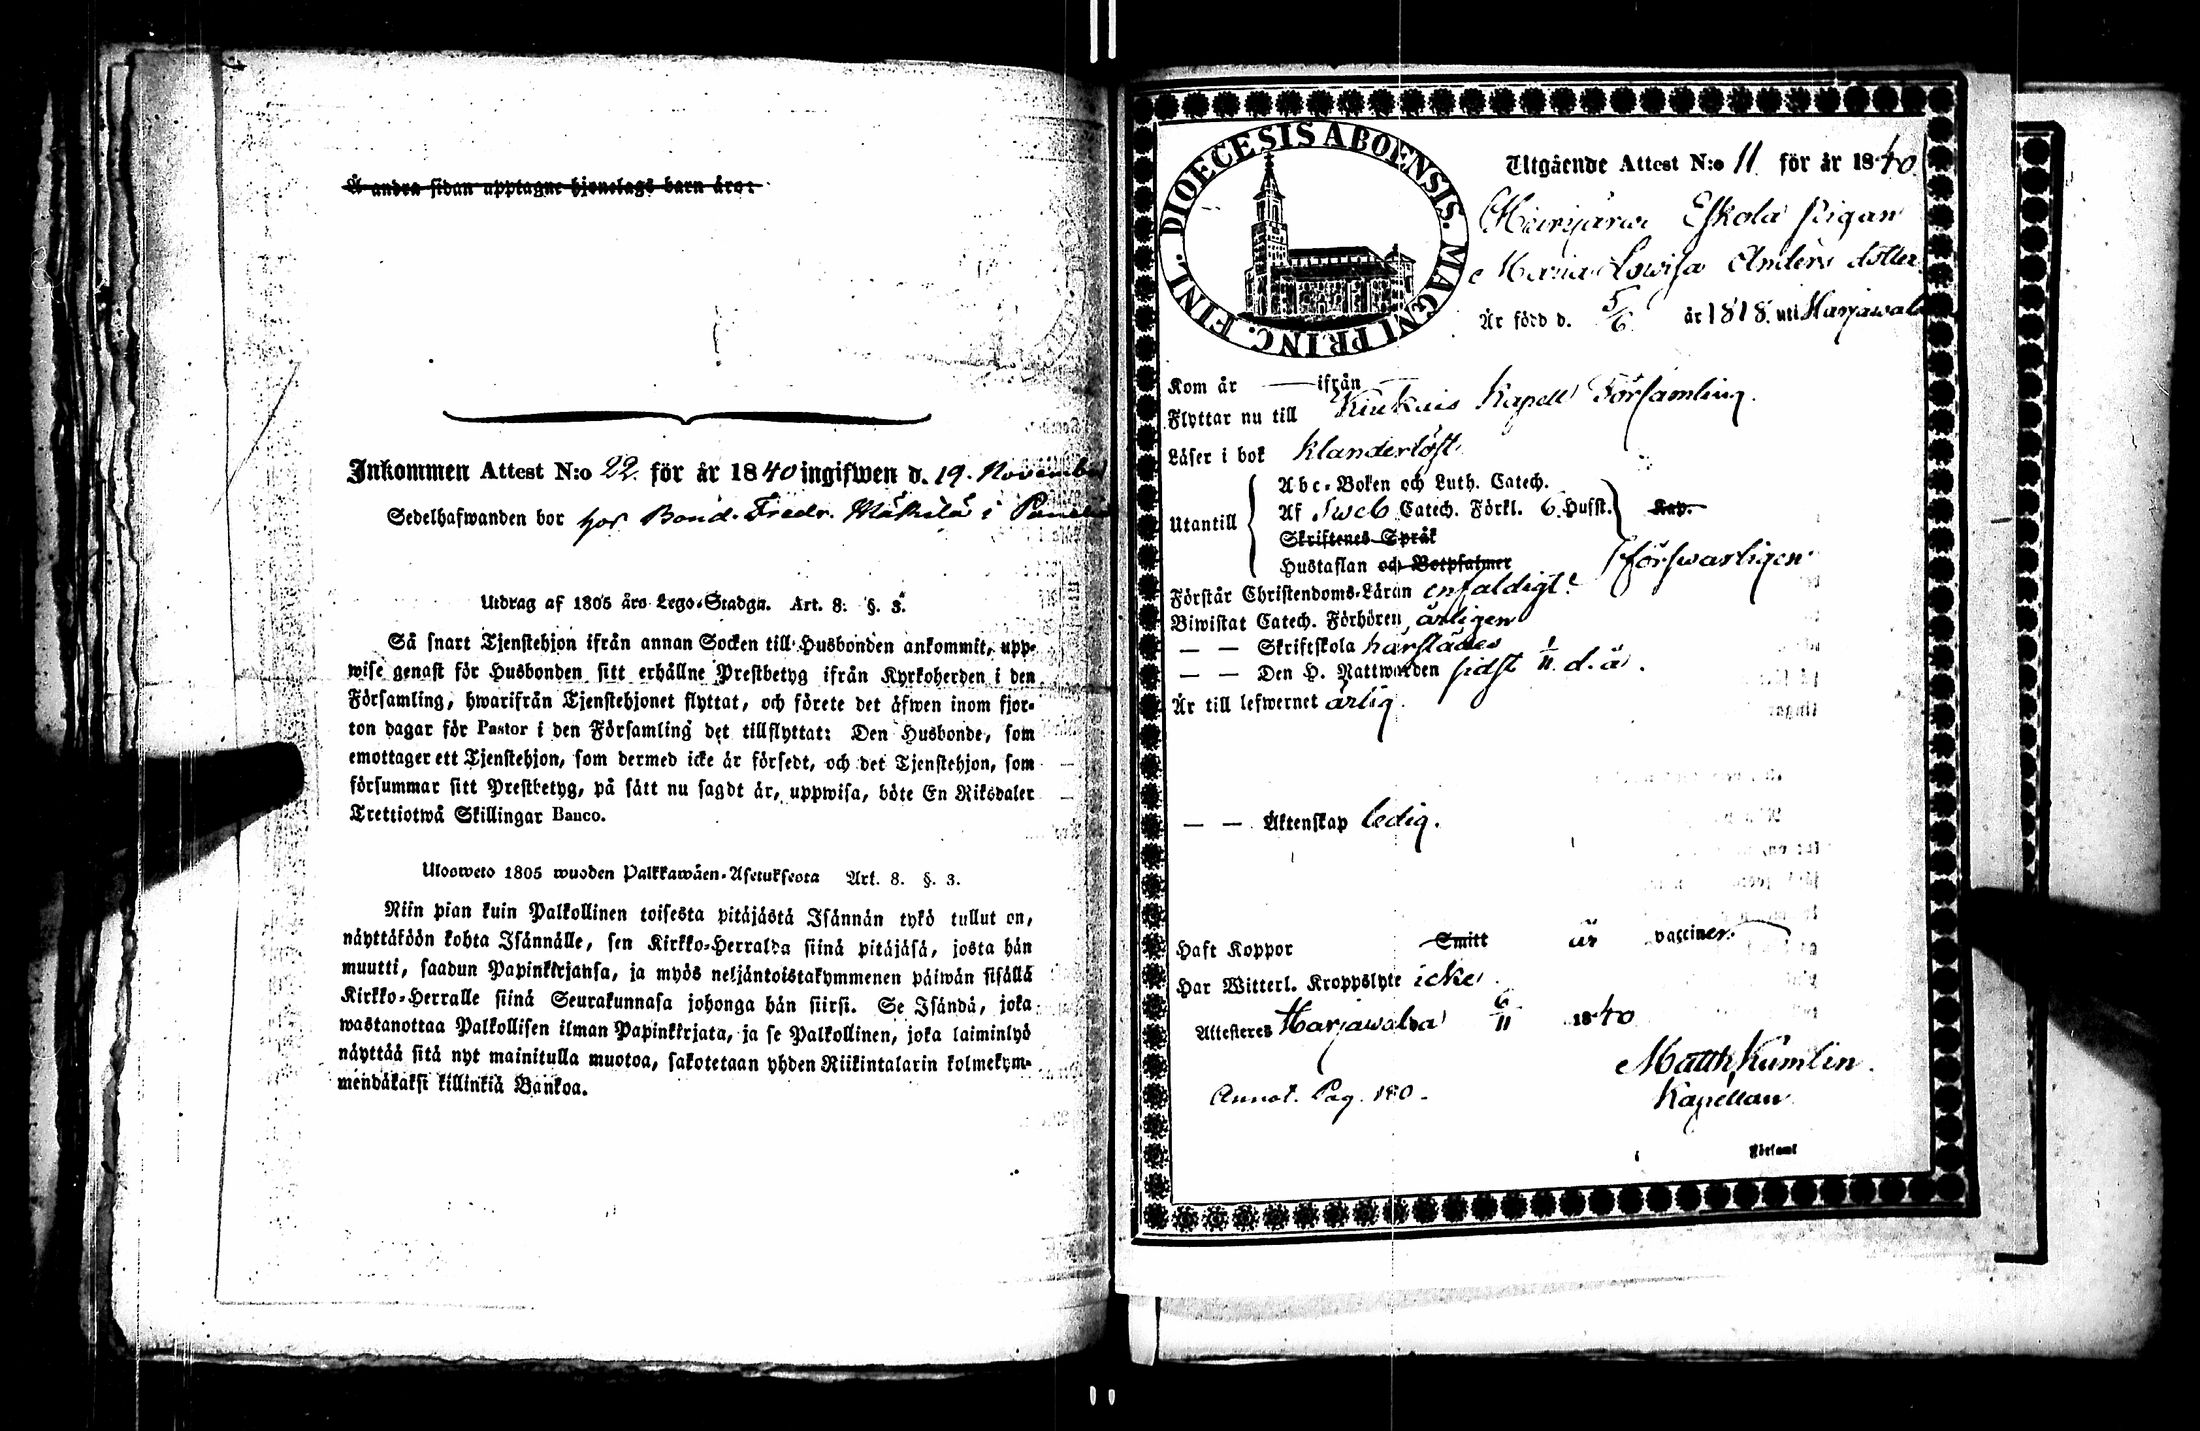 Å andra sidan upptagne hjonelags barn äro:
Inkommen Attest N:o 22 för år 1840 ingifwen d. 19. November
Sedelhafwanden bor hos Bond. Fredr. Mäkilä i Panelia
Utdrag af 1805 års Lego-Stadga. Art. 8. §. 3.
Så snart Tjenstehjon ifrån annan Socken till Husbonden ankommit, upp-
wise genast för Husbonden sitt erhållne Prestbetyg ifrån Kyrkoherden i den
Församling, hwarifrån Tjenstehjonet flyttat, och förete det äfwen inom fjor-
ton dagar för Pastor i den Församling det tillflyttat: Den Husbonde, som
emottager ett Tjenstehjon, som dermed icke är försedt, och det Tjenstehjon, som
försummar sitt Prestbetyg, på sätt nu sagdt är, uppwisa, böte En Riksdaler
Trettiotwå Skillingar Banco.
Ulosweto 1805 wuoden Palkkawäen-Asetuksesta Art. 8. §. 3.
Niin pian kuin Palkollinen toisesta pitäjästä Isännän tykö tullut on,
näyttäköön kohta Isännälle, sen Kirkko-Herralda siinä pitäjäsä, josta hän
muutti, saadun Papinkirjansa, ja myös neljäntoistakymmenen päiwän sisällä
Kirkko-Herralle siinä Seurakunnasa johonga hän siirsi. Se Isändä, joka
wastanottaa Palkollisen ilman Papinkirjata, ja se Palkollinen, joka laiminlyö
näyttää sitä nyt mainitulla muotoa, sakotetaan yhden Riikintalarin kolmekym-
mendäkaksi killinkiä Bankoa.
DIOECESIS ABOENSIS. MAGNI PRINC. FINL.
Utgående Attest N:o 11 för år 1840
Eskola pigan
Maria Lowisa Anders dotter
Är född d. 5/6 år 1818. uti Harjawalda
Kom år — ifrån —
Flyttar nu till Kiukais Kapell Församling.
Läser i bok klanderlöst
Utantill
Abc-Boken och Luth. Catech.
Af Sweb. Catech. Förkl. 6 Hufst. Kap.
Skriftenes Språk
Hustaflan och Botpsalmer
förswarligen
Förstår Christendoms-Läran enfaldigt
Biwistat Catech. Förhören årligen
— — Skriftskola härstädes
— — Den H. Nattwarden sidst 1/11 d. å.
Är till lefwernet ärlig.
— — Äktenskap ledig.
Haft Koppor Smitt är vaccinerad
Har Witterl. Kroppslyte icke
Attesteres Harjawalda 6/11 1840
Matth. Kumlin.
Annot. Pag. 180.
Kapellan
Församl